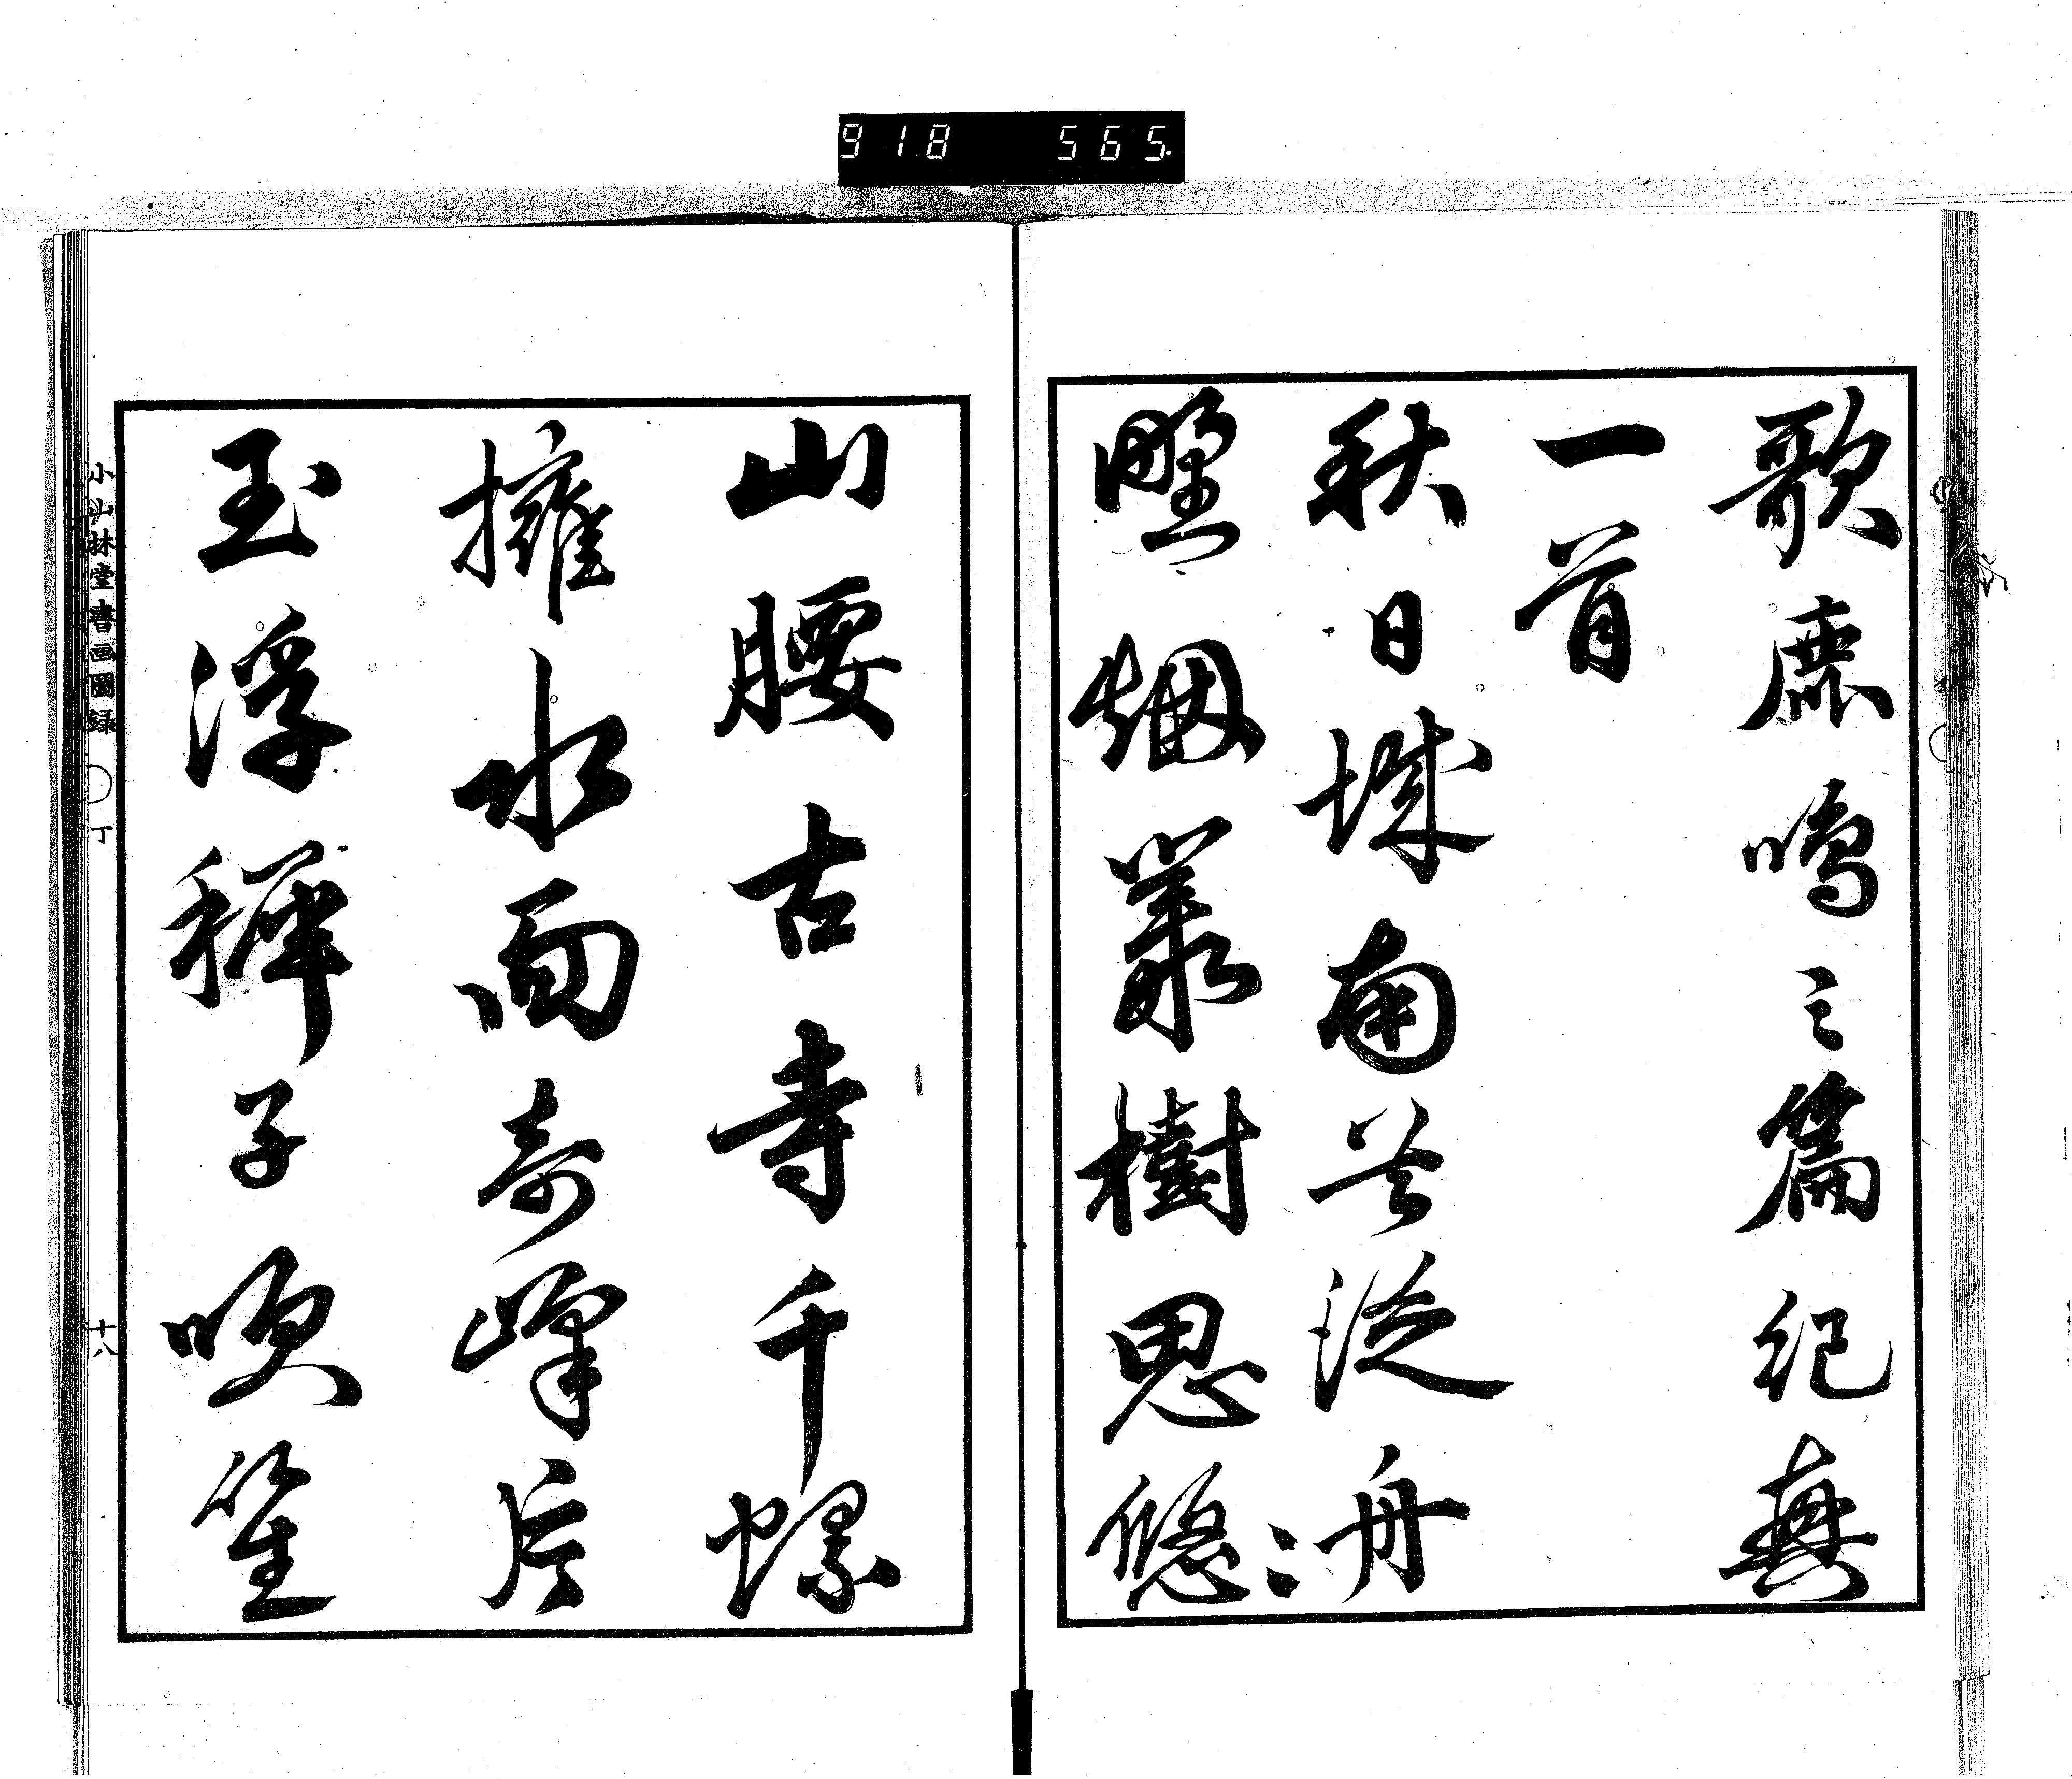 918 565
歌鹿鳴之篇紀興
一首
秋日城南共泛舟
野烟叢樹思悠〻
山腰古寺千螺
擁水面奇峰片
玉浮稺子吹笙
小山林堂書画圖録 〇 丁 十八